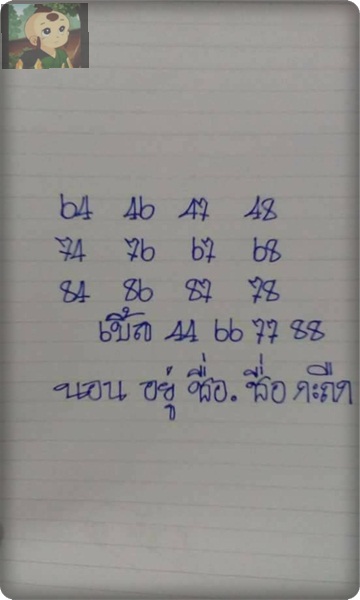 64 46 47 48
74 76 67 68
84 86 87 78
เบิ้ล 44 66 77 88
นอน อยู่ ซื่อ. ซื่อ กะถืก